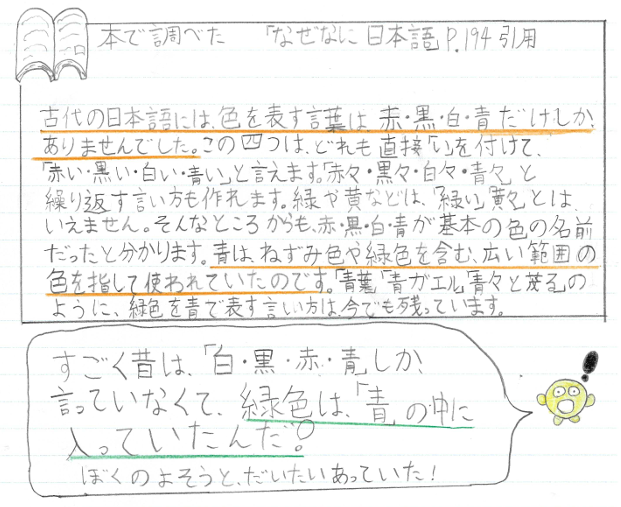 本で調べた 「なぜなに日本語」P.194引用
古代の日本語には、色を表す言葉は、赤・黒・白・青だけしか、
ありませんでした。この四つは、どれも直接「い」を付けて、
「赤い・黒い・白い・青い」と言えます。「赤々・黒々・白々・青々」と
繰り返す言い方も作れます。緑や黄などは、「緑い」「黄々」とは、
いえません。そんなところからも、赤・黒・白・青が基本の色の名前
だったと分かります。青は、ねずみ色や緑色を含む、広い範囲の
色を指して使われていたのです。「青葉」「青ガエル」「青々と茂る」の
ように、緑色を青で表す言い方は、今でも残っています。
すごく昔は、「白・黒・赤・青」しか、
言っていなくて、緑色は、「青」の中に
入っていたんだ。
ぼくのよそうと、だいたいあっていた!